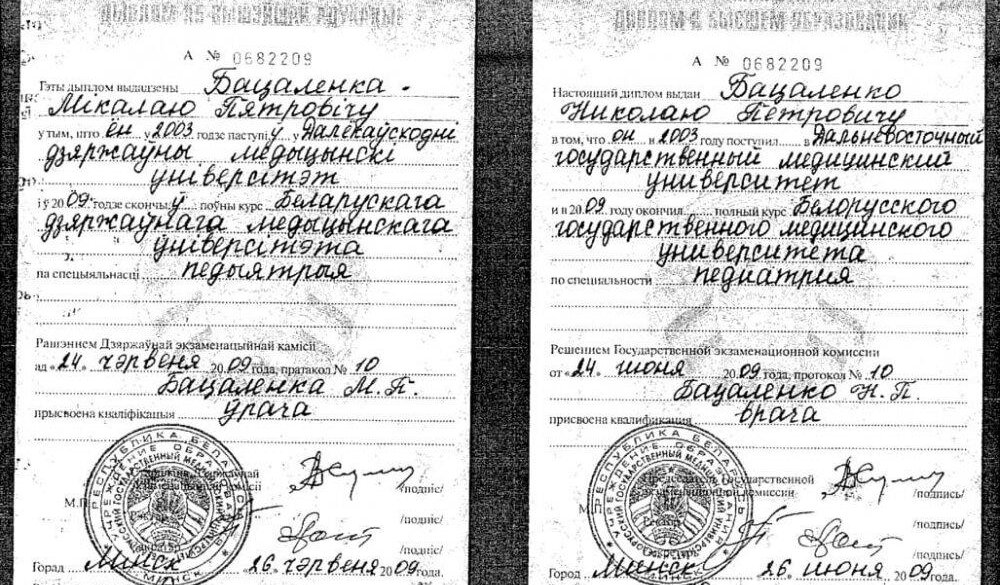 ДЫПЛОМ АБ ВЫШЭЙШАЙ АДУКАЦЫІ
А № 0682209
Гэты дыплом выдадзены Бацаленка
Мікалаю Пятровічу
у тым, што ён у 2003 годзе паступіў у Далёкаўсходні
дзяржаўны медыцынскі
універсітэт
і ў 2009 годзе скончыў поўны курс Беларускага
дзяржаўнага медыцынскага
універсітэта
па спецыяльнасці педыятрыя
Рашэннем Дзяржаўнай экзаменацыйнай камісіі
ад «24» чэрвеня 2009 года, пратакол № 10
Бацаленка М. П.
прысвоена кваліфікацыя урача
М.П.
/подпіс/
/подпіс/
/подпіс/
Горад Минск 26 чэрвеня 2009 года.
ДИПЛОМ О ВЫСШЕМ ОБРАЗОВАНИИ
А № 0682209
Настоящий диплом выдан Бацаленко
Николаю Петровичу
в том, что он в 2003 году поступил в Дальневосточный
государственный медицинский
университет
и в 2009 году окончил полный курс Белорусского
государственного медицинского
университета
по специальности педиатрия
Решением Государственной экзаменационной комиссии
от «24» июня 2009 года, протокол № 10
Бацаленко Н. П.
присвоена квалификация врача
Председатель Государственной
экзаменационной комиссии
/подпись/
М.П.
Ректор
/подпись/
Секретарь
/подпись/
Город Минск 26 июня 2009 года.
РЕСПУБЛИКА БЕЛАРУСЬ
УЧРЕЖДЕНИЕ ОБРАЗОВАНИЯ
МИНСК